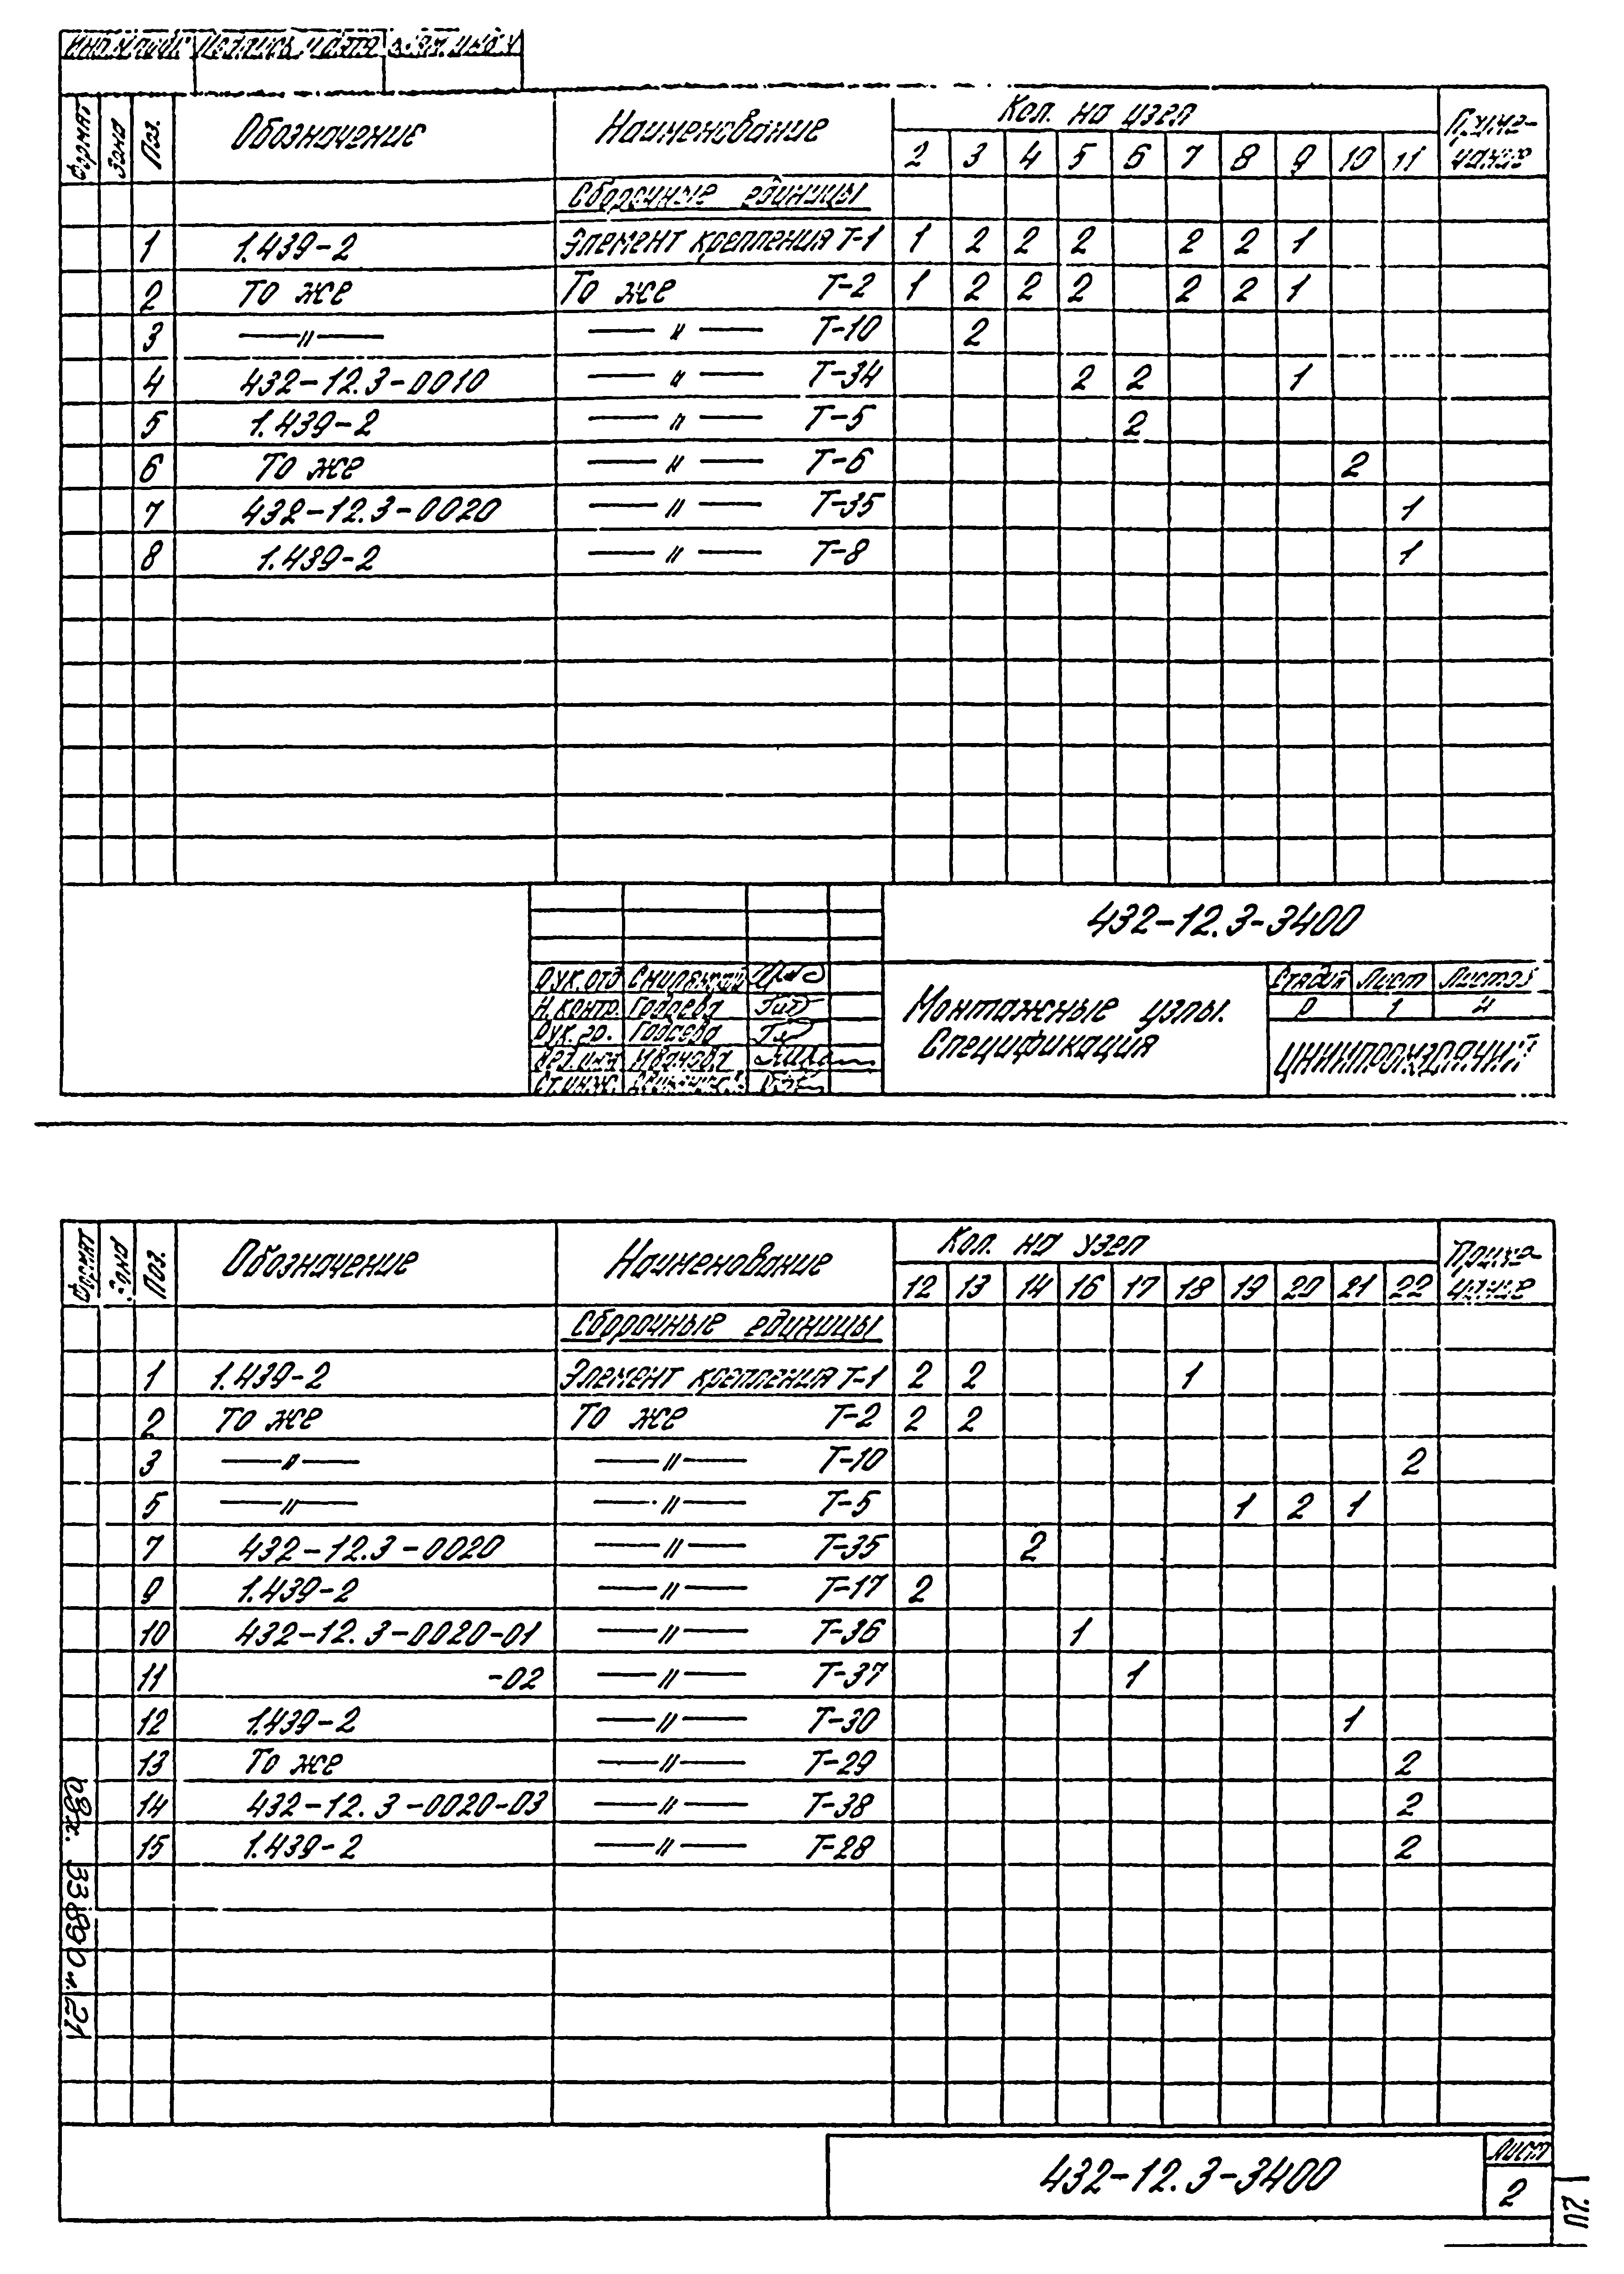 Инв.№ подл. Подпись и дата Взам. инв. №
Формат Зона Поз. Обозначение Наименование Кол. на узел Примечание
2 3 4 5 6 7 8 9 10 11
Сборочные единицы
1 1.439-2 Элемент крепления Т-1 1 2 2 2 2 2 1
2 То же То же Т-2 1 2 2 2 2 2 1
3 —〃— —〃— Т-10 2
4 432-12.3-0010 —〃— Т-34 2 2 1
5 1.439-2 —〃— Т-5 2
6 То же —〃— Т-6 2
7 432-12.3-0020 —〃— Т-35 1
8 1.439-2 —〃— Т-8 1
432-12.3-3400
Рук. отд.
Н. контр. Гадаева
Рук. гр. Гадаева
Иванова
Ст. инж.
Монтажные узлы.
Спецификация
Стадия Лист Листов
Р 1 4
ЦНИИПРОМЗДАНИЙ
Формат Зона Поз. Обозначение Наименование Кол. на узел Примечание
12 13 14 16 17 18 19 20 21 22
Сборочные единицы
1 1.439-2 Элемент крепления Т-1 2 2 1
2 То же То же Т-2 2 2
3 —〃— —〃— Т-10 2
5 —〃— —〃— Т-5 1 2 1
7 432-12.3-0020 —〃— Т-35 2
9 1.439-2 —〃— Т-17 2
10 432-12.3-0020-01 —〃— Т-36 1
11 -02 —〃— Т-37 1
12 1.439-2 —〃— Т-30 1
13 То же —〃— Т-29 2
14 432-12.3-0020-03 —〃— Т-38 2
15 1.439-2 —〃— Т-28 2
33890 л. 21
432-12.3-3400
Лист
2